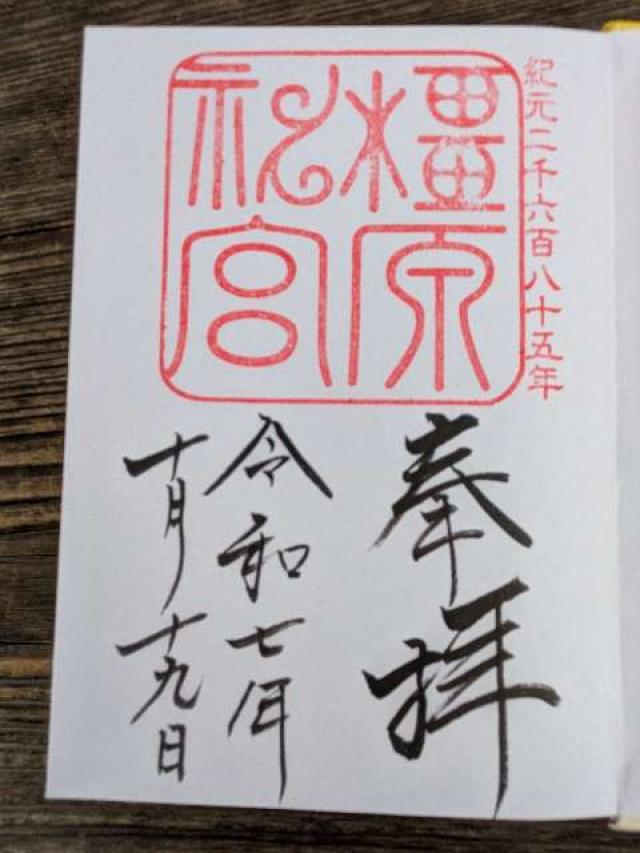 紀元二千六百八十五年
橿原
神宮
奉拝
令和七年
十月十九日